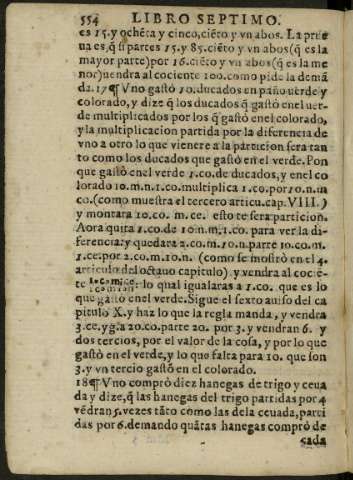 554 LIBRO SEPTIMO.
es 15. y ochẽta y cinco, ciẽto y vn abos. La prue
ua es, q̃ si partes 15. y 85. ciẽto y vn abos (q̃ es la
mayor parte) por 16. ciẽto y vn abos (q̃ es la me
nor) uendra al cociente 100. como pide la demã
da. 17 ¶ Vno gastò 10. ducados en paño uerde y
colorado, y dize q̃ los ducados q̃ gastò enel uer-
de multiplicados por los q̃ gastò enel colorado,
y la multiplicacion partida por la diferencia de
vno a otro lo que viniere a la particion sera tan
to como los ducados que gastò en el verde. Pon
que gastò enel verde 1. co. de ducados, y enel co
lorado 10. m. n. 1. co. multiplica 1. co. por 10. n. m
co. (como muestra el tercero articu. cap. VIII.)
y montara 10. co. m. ce. esto te sera particion.
Aora quita 1. co. de 10 n. m. 1. co. para ver la di-
ferencia: y quedara 2. co. m. 10. n. parte 10. co. m.
1. ce. por 2. co. m. 10. n. (como se mostrò en el 4.
articulo del octauo capitulo) y vendra al cociẽ-
te lo qual igualaras a 1. co. que es lo
que gastò enel verde. Sigue el sexto auiso del ca
pitulo X. y haz lo que la regla manda, y vendra
3. ce. yg. a 20. co. parte 20. por 3. y vendran 6. y
dos tercios, por el valor de la cosa, y por lo que
gastò en el verde, y lo que falta para 10. que son
3. y vn tercio gastò en el colorado.
18 ¶ Vno comprò diez hanegas de trigo y ceua
da y dize, q̃ las hanegas del trigo partidas por 4
vẽdran 5. vezes tãto como las dela ceuada, parti
das por 6. demando quãtas hanegas comprò de
cada